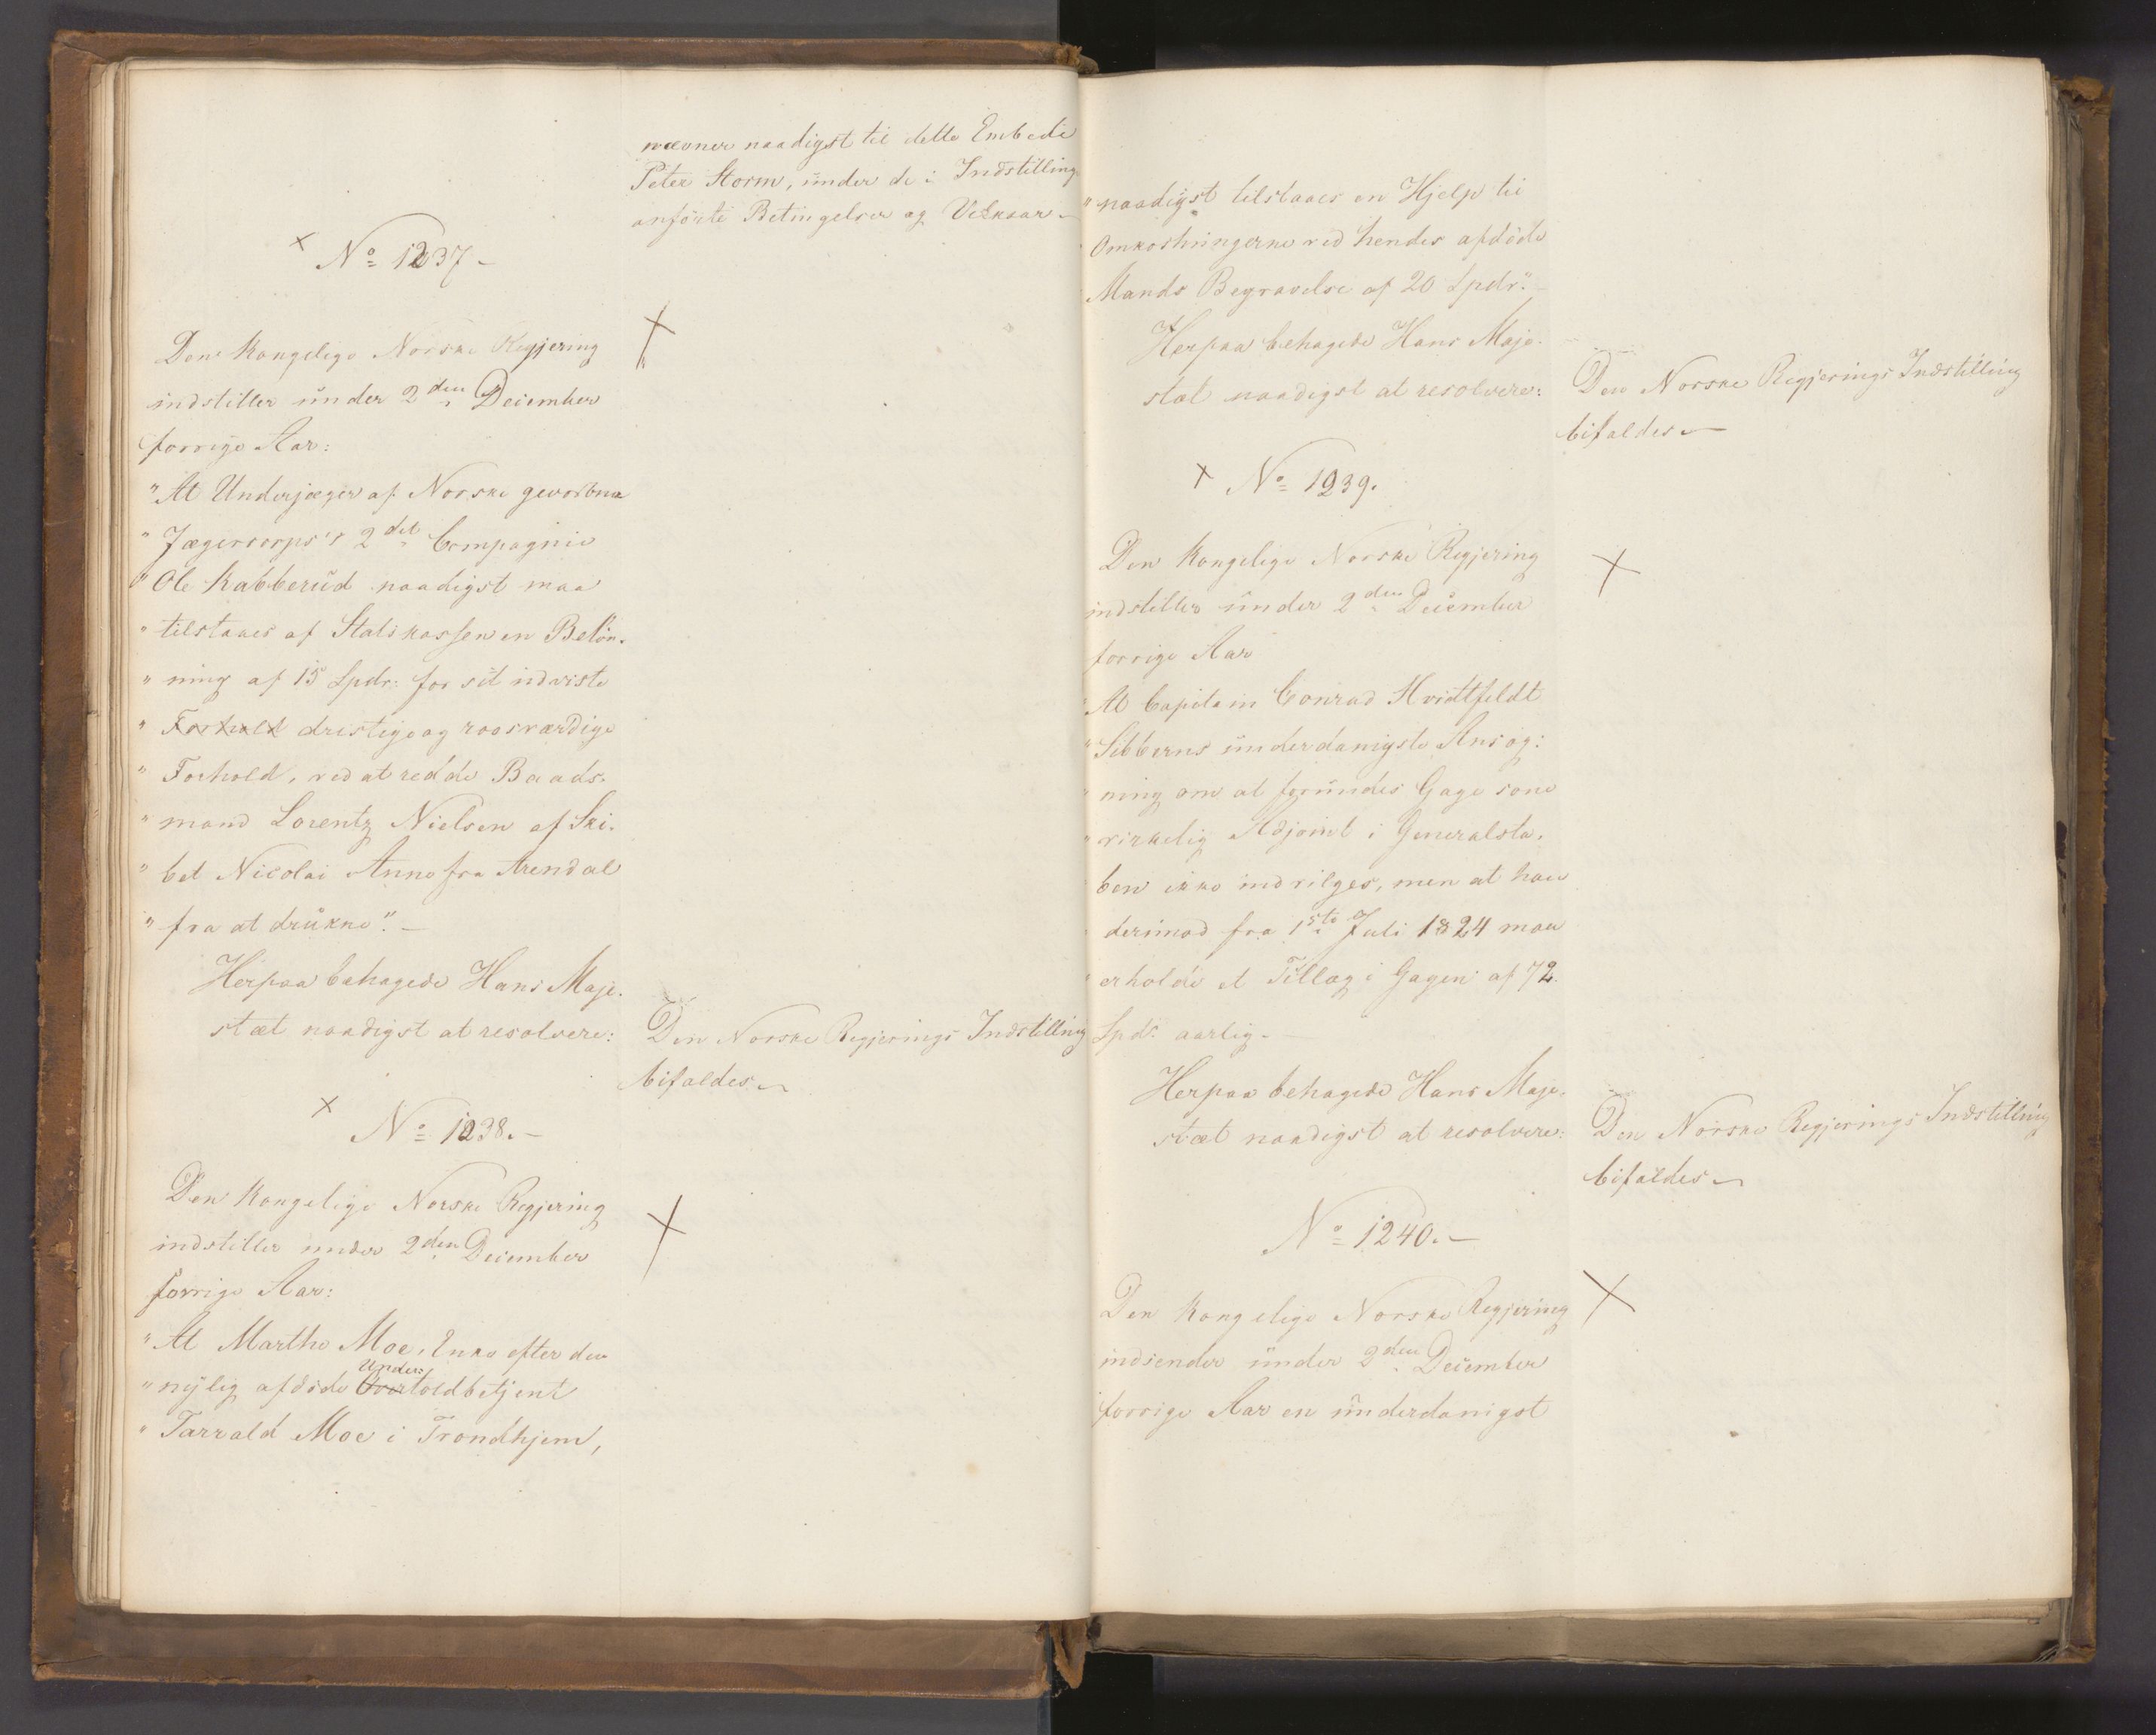 nævner naadigst til dette Embede
Peter Storm, under de i Indstilling
anførte Betingelser og Vilkaar –
× No 1237 –
Den Kongelige Norske Regjering
indstiller under 2den December
forrige Aar:
"At Underjæger af Norske gevorbne
" Jægercorps's 2det Compagnie
" Ole Kabberud naadigst maa
" tilstaaes af Statskassen en Beløn-
" ning af 15 Spdr: for sit udviste
" Forhold dristige og roosværdige
" Forhold, ved at redde Baads-
" mand Lorentz Nielsen af Ski-
" bet Nicolai Anno fra Arendal
" fra at drukne". –
Herpaa behagede Hans Maje-
stæt naadigst at resolvere:
Den Norske Regjerings Indstilling
bifaldes –
× No 1238. –
Den Kongelige Norske Regjering
indstiller under 2den December
forrige Aar:
" At Marthe Moe, Enke efter den
" nylig afdøde Over Under toldbetjent
" Tarrald Moe i Trondhjem,
" naadigst tilstaaes en Hjelp til
Omkostningerne ved hendes afdøde
Mands Begravelse af 20 Spdr". –
Herpaa behagede Hans Maje-
stæt naadigst at resolvere:
Den Norske Regjerings Indstilling
bifaldes –
× No 1239.
Den Kongelige Norske Regjering
indstiller under 2den December
forrige Aar
"At Capitain Conrad Hvidtfeldt
"Sibberns underdanigste Ansøg-
" ning om at forundes Gage som
" virkelig Adjoint i Generalsta-
" ben ikke indvilges, men at han
" derimod fra 1ste Juli 1824 maa
" erholde et Tillæg i Gagen af 72
Spdr: aarlig. –
Herpaa behagede Hans Maje-
stæt naadigst at resolvere:
Den Norske Regjerings Indstilling
bifaldes –
No 1240. –
Den Kongelige Norske Regjering
indsender under 2den December
forrige Aar en underdanigst